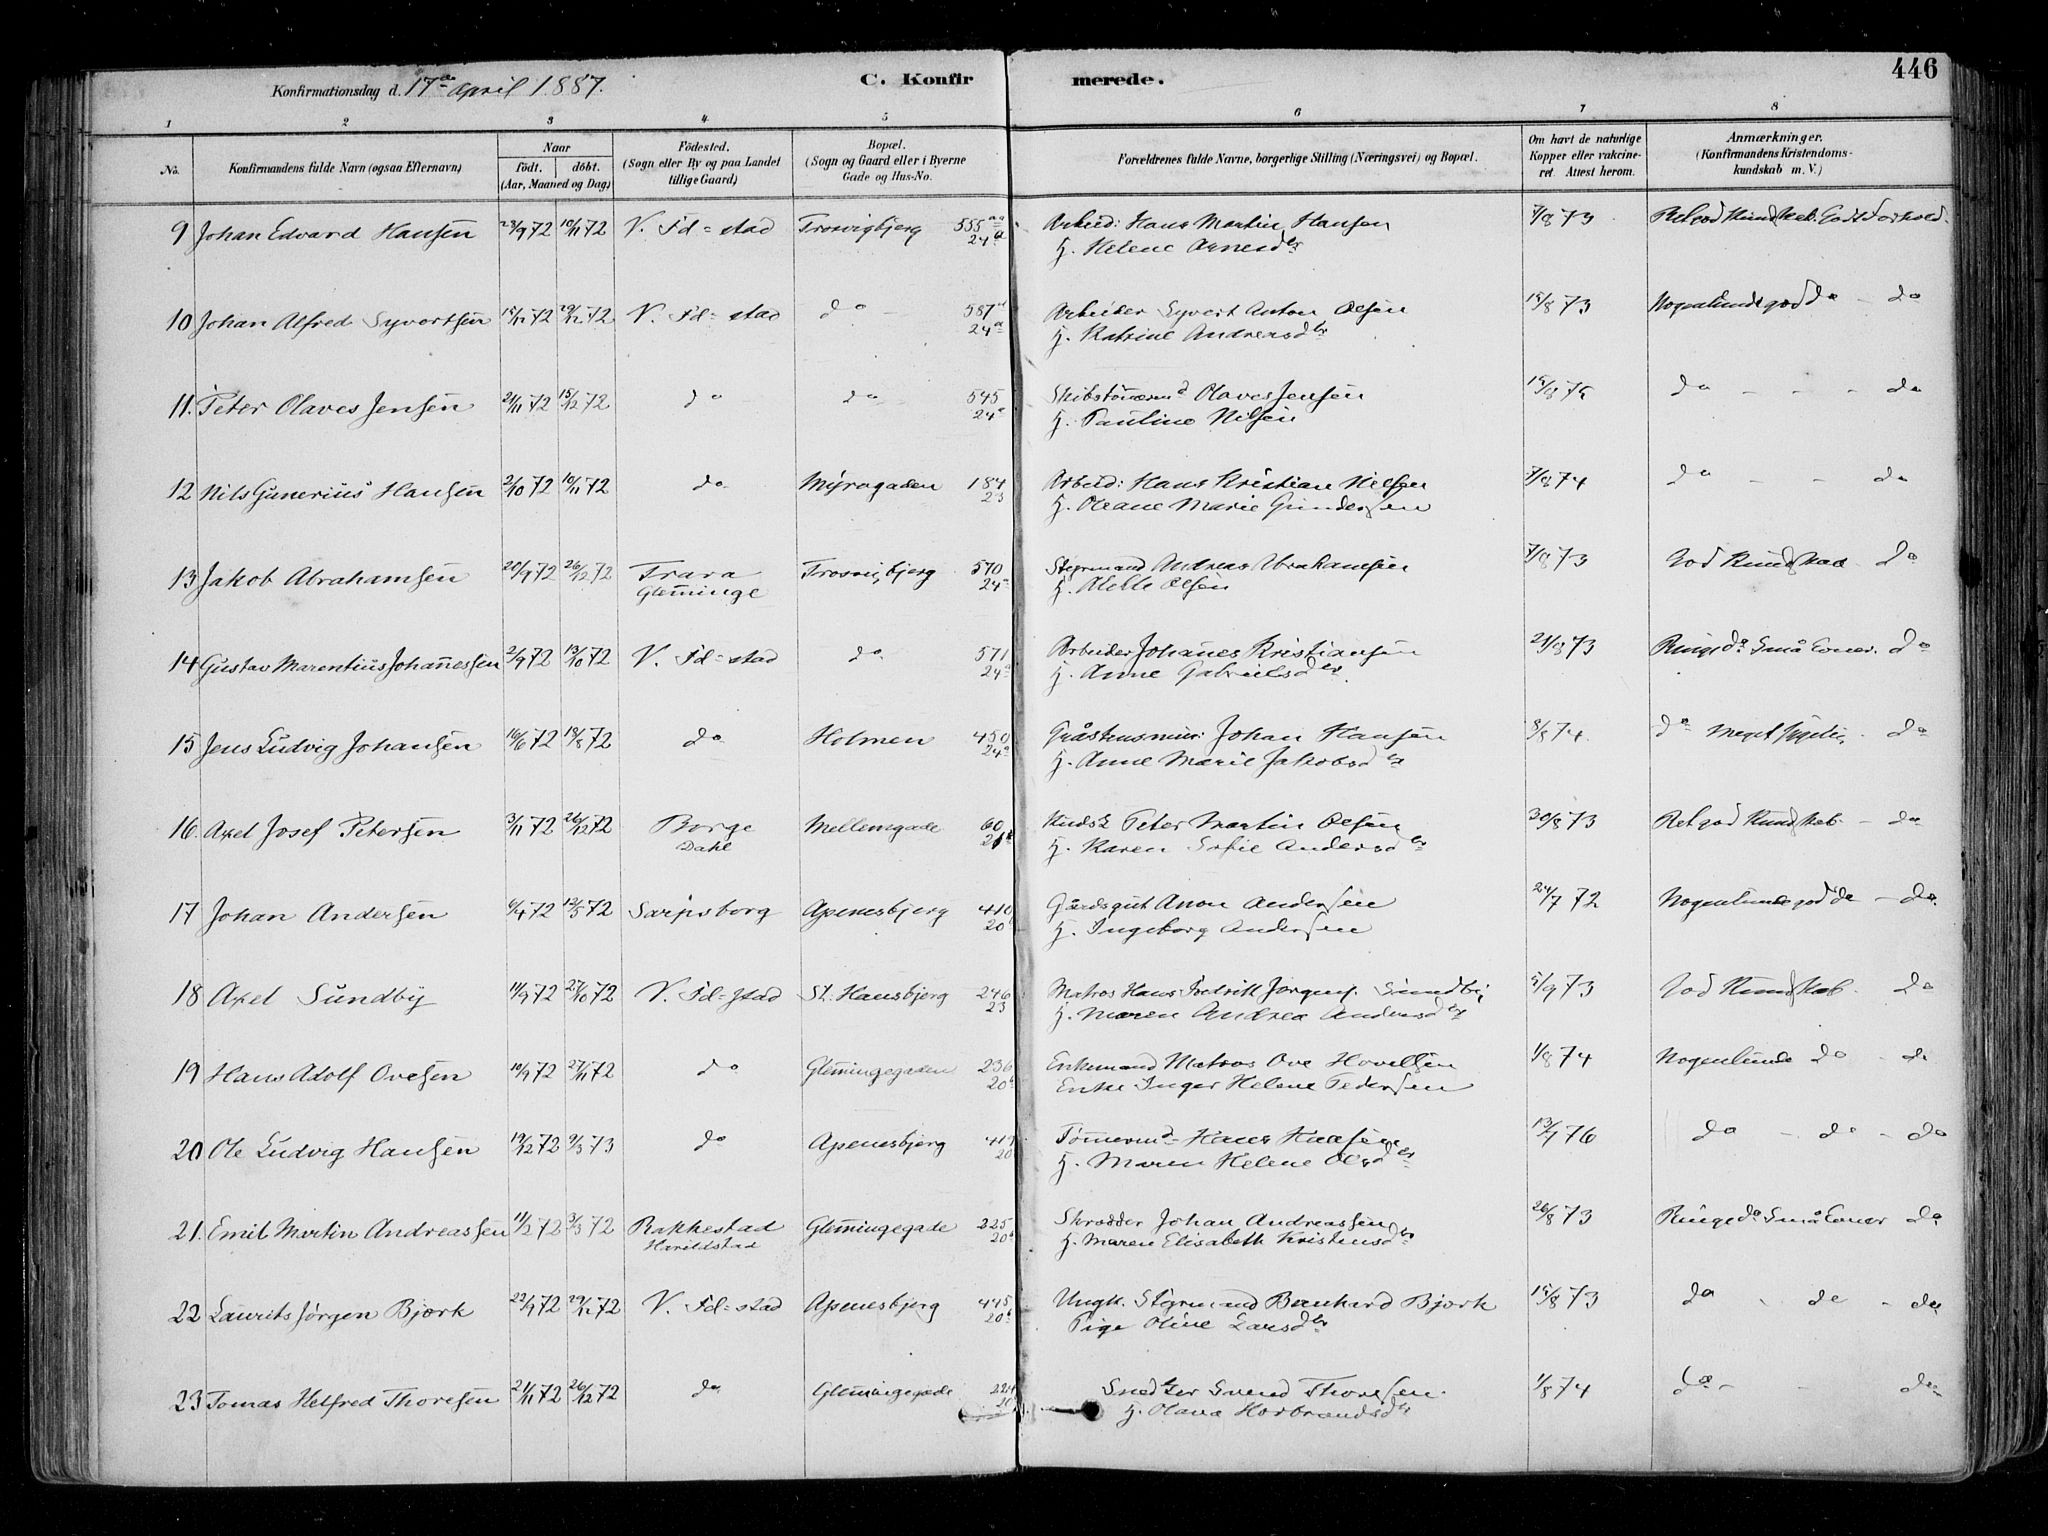 446
Konfirmationsdag d. 17de april 1887.
C. Konfirmerede.
1 2 3 4 5 6 7 8
No. Konfirmandens fulde Navn (ogsaa Efternavn) Naar født. døbt. (Aar, Maaned og Dag) Fødested. (Sogn eller By og paa Landet tillige Gaard) Bopæl. (Sogn og Gaard eller i Byerne Gade og Hus-No. Forældrenes fulde Navne, borgerlige Stilling (Næringsvei) og Bopæl. Om havt de naturlige Kopper eller vakcineret. Attest herom. Anmærkninger. (Konfirmandens Kristendomskundskab m. V.)
9 Johan Edvard Hansen 23/9 72 10/11 72 V. Fd=stad Trosvigbjerg 555 Arbeid: Hans Martin Hansen 7/8 73 Ret god Kundskab. Godt Forhold.
24a H. Helene Arnesdtr
10 Johan Alfred Syvertsen 15/11 72 29/12 72 V. Fd=stad do 587 Arbeider Syvert Anton Olsen 15/8 73 Nogenlunde god do - do
24a H. Katrine Andreasdtr
11. Peter Olaves Jensen 21/11 72 15/12 72 do do 545 Skibstømmermd Olaves Jensen 15/8 75 do - - - do
24a H. Pauline Nilsen
12 Nils Gunerius Hansen 2/10 72 10/11 72 do Myragaden 184 Arbeid: Hans Kristian Nilsen 7/8 74 do - - do
23 H. Oleane Marie Gundersen
13 Jakob Abrahamsen 20/9 72 26/12 72 Trara Trosvigbjerg 570 Styrmand Andreas Abrahamsen 7/8 73 God Kundskab do
Glemminge 24a H. Olsen
14 Gustav Marentius Johannessen 2/9 72 13/10 72 V. Fd=stad do 571 Arbeider Johanes Kristiansen 21/8 73 Ringe do Små Evner. do
24a H. Anne Gabrielsdtr
15 Jens Ludvig Johansen 16/6 72 18/8 72 do Holmen 450 Johan Hansen 8/8 74. do meget do
24a H. Anne Marie Jakobsdtr
16. Axel Josef Petersen 3/11 72 26/12 72 Borge Mellemgade 60 Kudsk Peter Martin Olsen 30/8 73 Ret god Kundskab. - do
Dahl H. Karen Sofie Andersdtr
17 Johan Andersen 6/4 72 12/5 72 Sarpsborg Apenesbjerg 410 Gårdsgut Anon Andersen 24/7 72 Nogenlunde god do - do.
20 H. Ingeborg Andersen
18 Axel Sundby 11/9 72 27/10 72 V. Fd=stad St. Hansbjerg 246 Matros Hans Fredrik Jørgens. Sundby 5/9 73 God Kundskab. do
23 H. Maren Andrea Andersdtr
19 Hans Adolf Ovesen 10/9 72 27/11 72 do Glemmingegaden 236 Enkemand Matros Ove Hovelsen 1/8 74 Nogenlunde do - do
20 Enke Inger Helene Pedersen
20 Ole Ludvig Hansen 19/12 72 9/3 73 do Apenesbjerg 417 Tømmermd Hans Hansen 13/7 76 do - do - do
20 H. Maren Helene Olsdtr
21. Emil Martin Andreassen 11/2 72 3/3 72 Rakkestad Glemmingegade 225 Skrædder Johan Andreassen 26/8 73 Ringe do Små Evner do
Harildstad 20 H. Maren Elisabeth Kristensdtr
22 Laurits Jørgen Bjørk 22/9 72 29/12 72 V. Fd=stad Apenesbjerg 445 Ungk. Styrmand Bernhard Bjørk 15/8 73 do - do - do
20 Pige Oline Larsdtr
23 Tomas Helfred Thoresen 21/11 72 26/12 72 do Glemmingegade 224 Snedker Svend Thoresen. 1/8 74 do - - do
20 H. Olava Horbrandsdtr